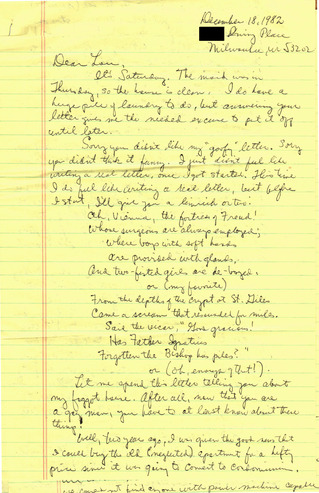 December 18, 1982
Irving Place
Milwaukee, WI 53202
Dear Lou,
It's Saturday. The maid was in
Thursday, so the house is clean. I do have a
huge pile of laundry to do, but answering your
letter gives me the needed excuse to put it off
until later.
Sorry you didn't like my "goofy" letter. Sorry
you didn't think it funny. I just didn't feel like
writing a real letter, once I got started. This time
I do feel like writing a real letter, but before
I start, I'll give you a limerick or two:
Oh, Vienna, the fortress of Freud!
Whose surgeons are always employed;
where boys with soft hands
are provided with glands,
And two-fisted girls are de-boyed.
or (my favorite)
From the depths of the crypt at St. Giles
Came a scream that resounded for miles.
Said the vicar, "Good gracious!
Has Father Ignatius
Forgotten the Bishop has piles?"
or (oh, enough of that!).
Let me spend this letter telling you about
my here. After all, now that you are
a gay man, you have to at least know about these
things.
Well, two years ago, I was given the good news that
I could buy the old (unexpected) apartment for a hefty
price since it was going to convert to condominium.
we could not find anyone with